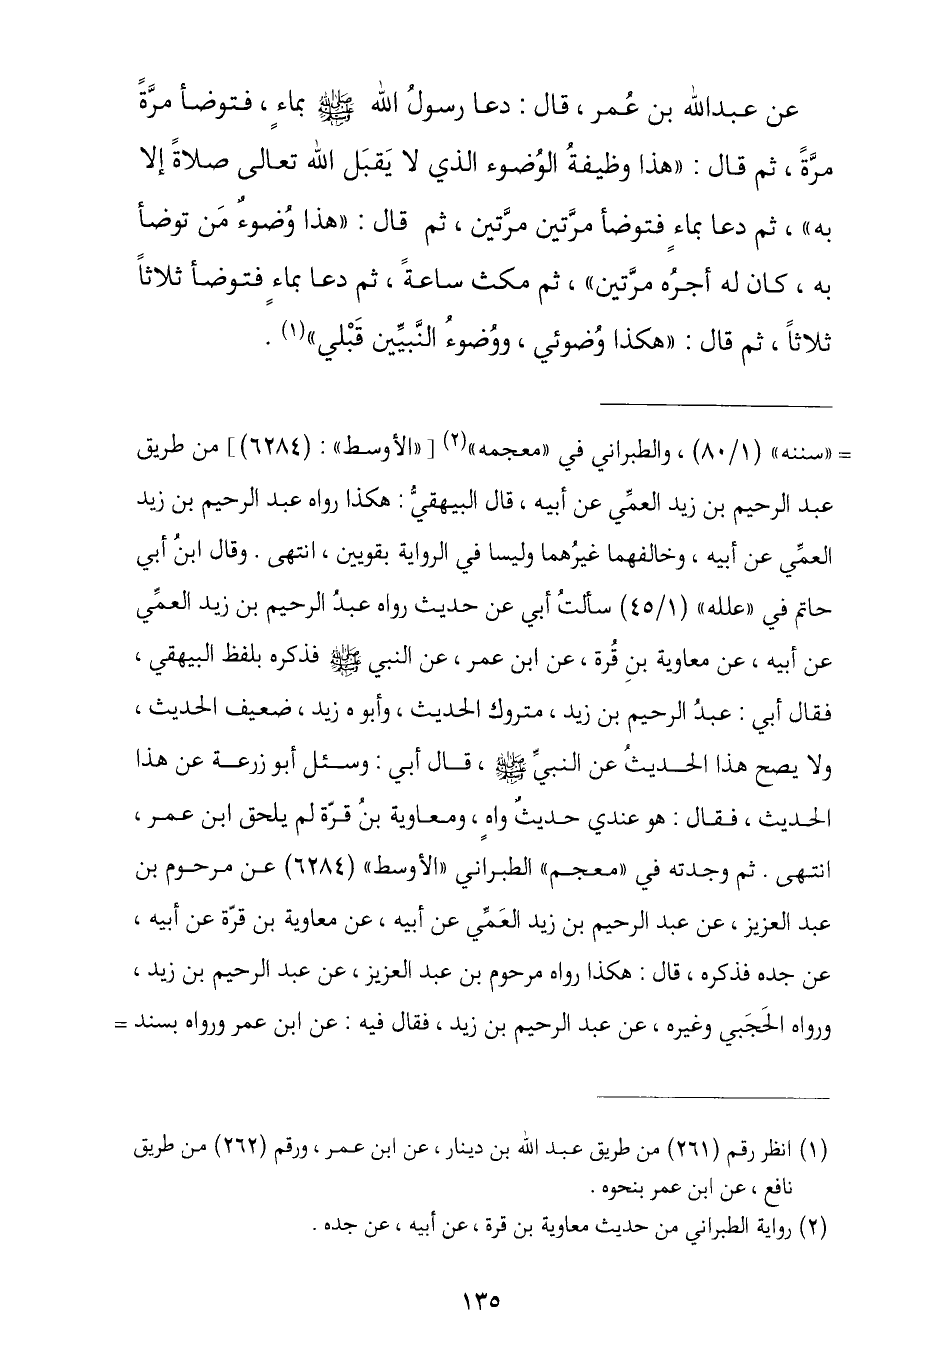 عن عبدالله بن عُمر ، قال : دعا رسولُ الله ﷺ بماءٍ ، فتوضأ مرَّةً
مرَّةً ، ثم قال : «هذا وظيفةُ الوُضوء الذي لا يَقبَل الله تعالى صلاةً إلا
به» ، ثم دعا بماءٍ فتوضأ مرَّتين مرَّتين ، ثم قال : «هذا وُضوءُ مَن توضأ
به ، كان له أجرُه مرَّتين» ، ثم مكث ساعةً ، ثم دعا بماءٍ فتوضأ ثلاثاً
ثلاثاً ، ثم قال : «هكذا وُضوئي ، ووُضوءُ النَّبيِّين قَبْلي»(١) .
= «سننه» (٨٠/١) ، والطبراني في «معجمه»(٢) [«الأوسط» : (٦٢٨٤)] من طريق
عبد الرحيم بن زيد العمِّي عن أبيه ، قال البيهقيُّ : هكذا رواه عبد الرحيم بن زيد
العمِّي عن أبيه ، وخالفهما غيرُهما وليسا في الرواية بقويين ، انتهى . وقال ابنُ أبي
حاتم في «علله» (٤٥/١) سألتُ أبي عن حديث رواه عبدُ الرحيم بن زيد العمِّي
عن أبيه ، عن معاوية بنِ قُرة ، عن ابن عمر ، عن النبي ﷺ فذكره بلفظ البيهقي ،
فقال أبي : عبدُ الرحيم بن زيد ، متروك الحديث ، وأبو ه زيد ، ضعيف الحديث ،
ولا يصح هذا الحديثُ عن النبيِّ ﷺ ، قال أبي : وسئل أبو زرعة عن هذا
الحديث ، فقال : هو عندي حديثٌ واهٍ ، ومعاوية بنُ قرّة لم يلحق ابن عمر ،
انتهى . ثم وجدته في «معجم» الطبراني «الأوسط» (٦٢٨٤) عن مرحوم بن
عبد العزيز ، عن عبد الرحيم بن زيد العَمِّي عن أبيه ، عن معاوية بن قرّة عن أبيه ،
عن جده فذكره ، قال : هكذا رواه مرحوم بن عبد العزيز ، عن عبد الرحيم بن زيد ،
ورواه الحَجَبي وغيره ، عن عبد الرحيم بن زيد ، فقال فيه : عن ابن عمر ورواه بسند =
(١) انظر رقم (٢٦١) من طريق عبد الله بن دينار ، عن ابن عمر ، ورقم (٢٦٢) من طريق
نافع ، عن ابن عمر بنحوه .
(٢) رواية الطبراني من حديث معاوية بن قرة ، عن أبيه ، عن جده .
١٣٥